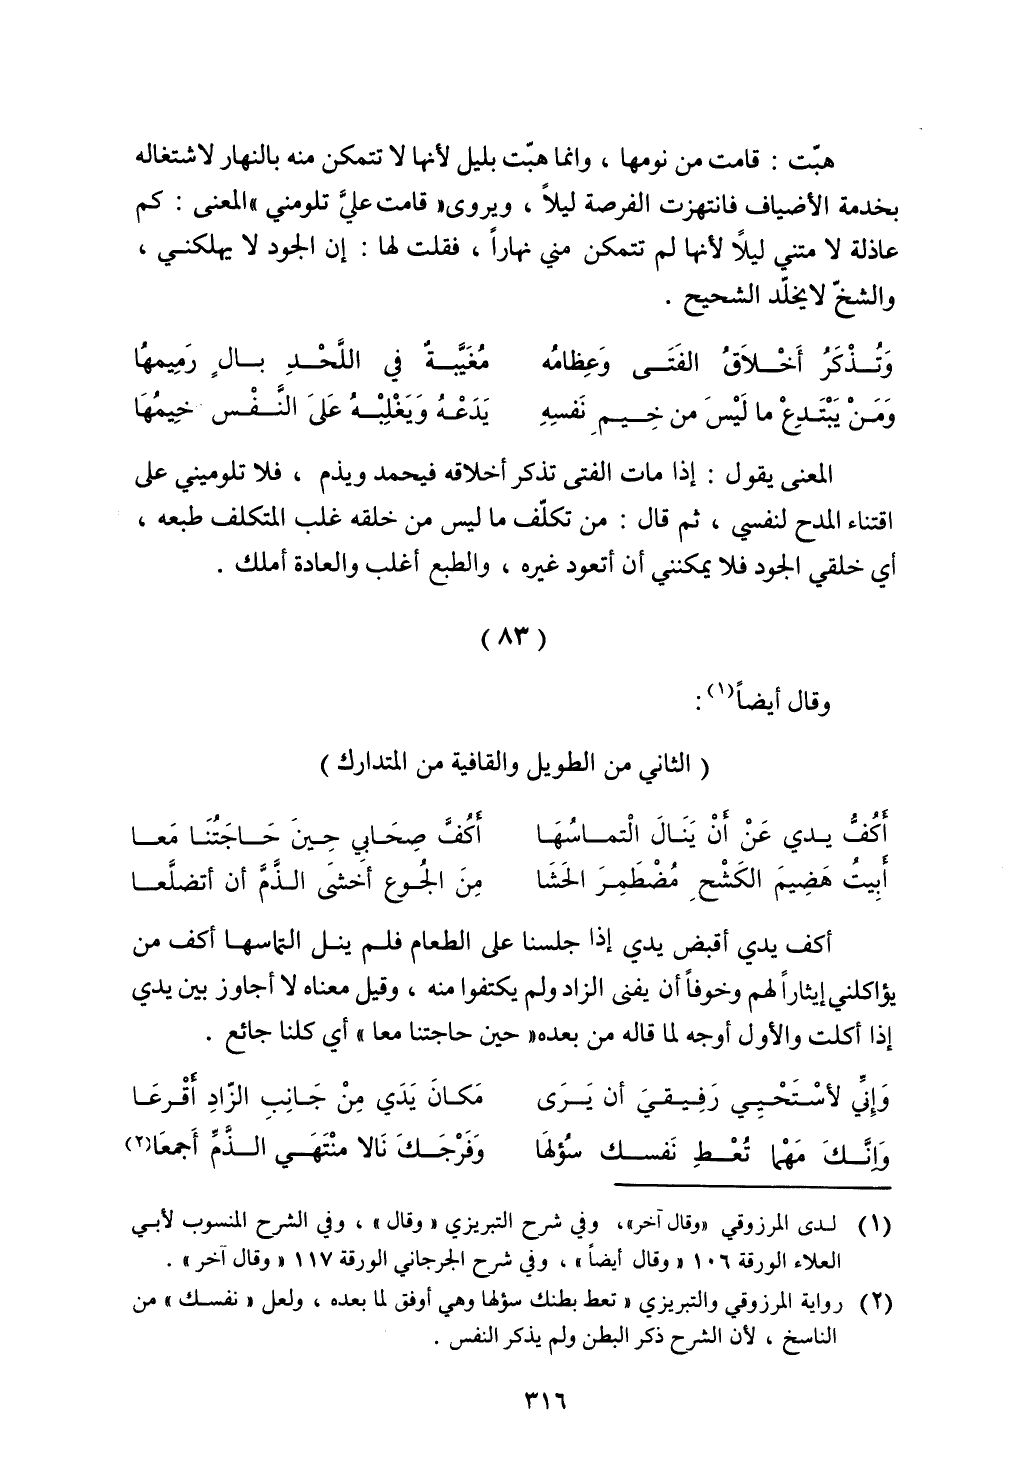 هبّت : قامت من نومها ، وانما هبّت بليل لأنها لا تتمكن منه بالنهار لاشتغاله
بخدمة الأضياف فانتهزت الفرصة ليلاً ، ويروى« قامت عليَّ تلومني »المعنى : كم
عاذلة لا متني ليلاً لأنها لم تتمكن مني نهاراً ، فقلت لها : إن الجود لا يهلكني ،
والشحّ لايخلّد الشحيح .
وَتُذْكَرُ أَخْلاَقُ الفَتَى وَعِظامُه مُغَيَّبةٌ في اللَّحْدِ بالٍ رَمِيمهُا
وَمَنْ يَبْتَدِعْ ما لَيْسَ من خِيمِ نَفسِهِ يَدَعْهُ وَيَغْلِبْهُ عَلىَ النَّفْس خيِمُهَا
المعنى يقول : إذا مات الفتى تذكر أخلاقه فيحمد ويذم ، فلا تلوميني على
اقتناء المدح لنفسي ، ثم قال : من تكلّف ما ليس من خلقه غلب المتكلف طبعه ،
أي خلقي الجود فلا يمكنني أن أتعود غيره ، والطبع أغلب والعادة أملك .
( ٨٣ )
وقال أيضاً(١) :
( الثاني من الطويل والقافية من المتدارك )
أَكُفُّ يدي عَنْ أَنْ يَنَالَ الْتماسُهَا أَكُفَّ صِحَابي حِينَ حَاجَتُنَا مَعا
أَبِيتُ هَضِيمَ الكَشْحِ مُضْطَمِرَ الحَشَا مِنَ الجُوع أخشَى الذَّمَّ أن أتضلَّعا
أكف يدي أقبض يدي إذا جلسنا على الطعام فلم ينل التماسها أكف من
يؤاكلني إيثاراً لهم وخوفاً أن يفنى الزاد ولم يكتفوا منه ، وقيل معناه لا أجاوز بين يدي
إذا أكلت والأول أوجه لما قاله من بعده« حين حاجتنا معا » أي كلنا جائع .
وَإنِّي لأسْتَحْيِي رَفِيقيَ أن يَرَى مَكانَ يَدَي مِنْ جَانِبِ الزّادِ أَقْرعَا
وَإنَّكَ مَهْما تُعْطِ نَفسك سُؤلهَا وَفَرْجَكَ نَالا منْتَهَى الذَّمِّ أَجمعَا(٢)
(١) لدى المرزوقي «وقال آخر»، وفي شرح التبريزي « وقال » ، وفي الشرح المنسوب لأبي
العلاء الورقة ١٠٦ « وقال أيضاً » ، وفي شرح الجرجاني الورقة ١١٧ « وقال آخر » .
(٢) رواية المرزوقي والتبريزي « تعط بطنك سؤلها وهي أوفق لما بعده ، ولعل « نفسك » من
الناسخ ، لأن الشرح ذكر البطن ولم يذكر النفس .
٣١٦